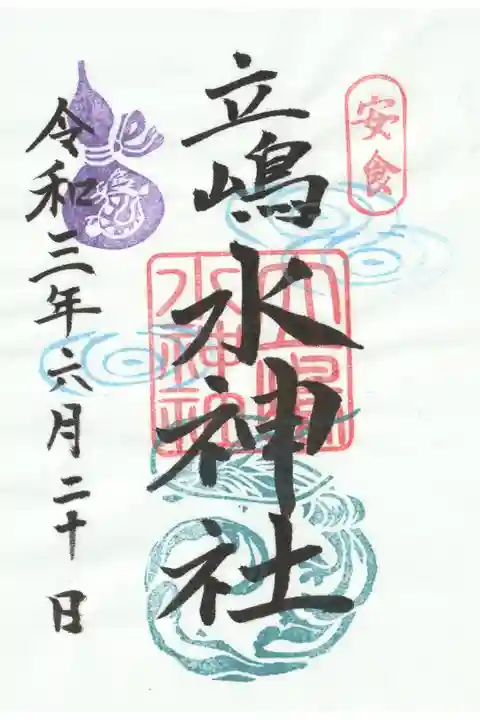 安食
立嶋水神社
立嶋
水神社
令和三年六月二十日